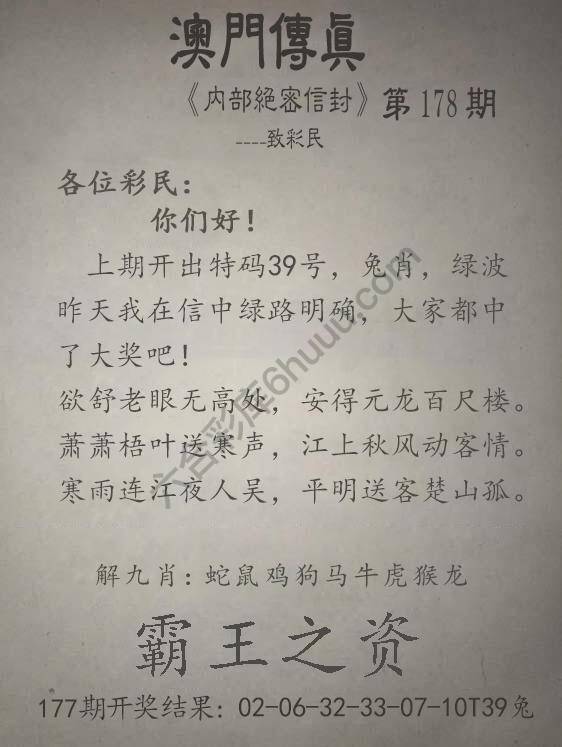 澳門傳真
《内部絕密信封》第178期
----致彩民
各位彩民：
你们好！
上期开出特码39号，兔肖，绿波
昨天我在信中绿路明确，大家都中
了大奖吧！
欲舒老眼无高处，安得元龙百尺楼。
萧萧梧叶送寒声，江上秋风动客情。
寒雨连江夜人吴，平明送客楚山孤。
六合彩库6huuu.com
解九肖：蛇鼠鸡狗马牛虎猴龙
霸王之资
177期开奖结果：02-06-32-33-07-10T39兔